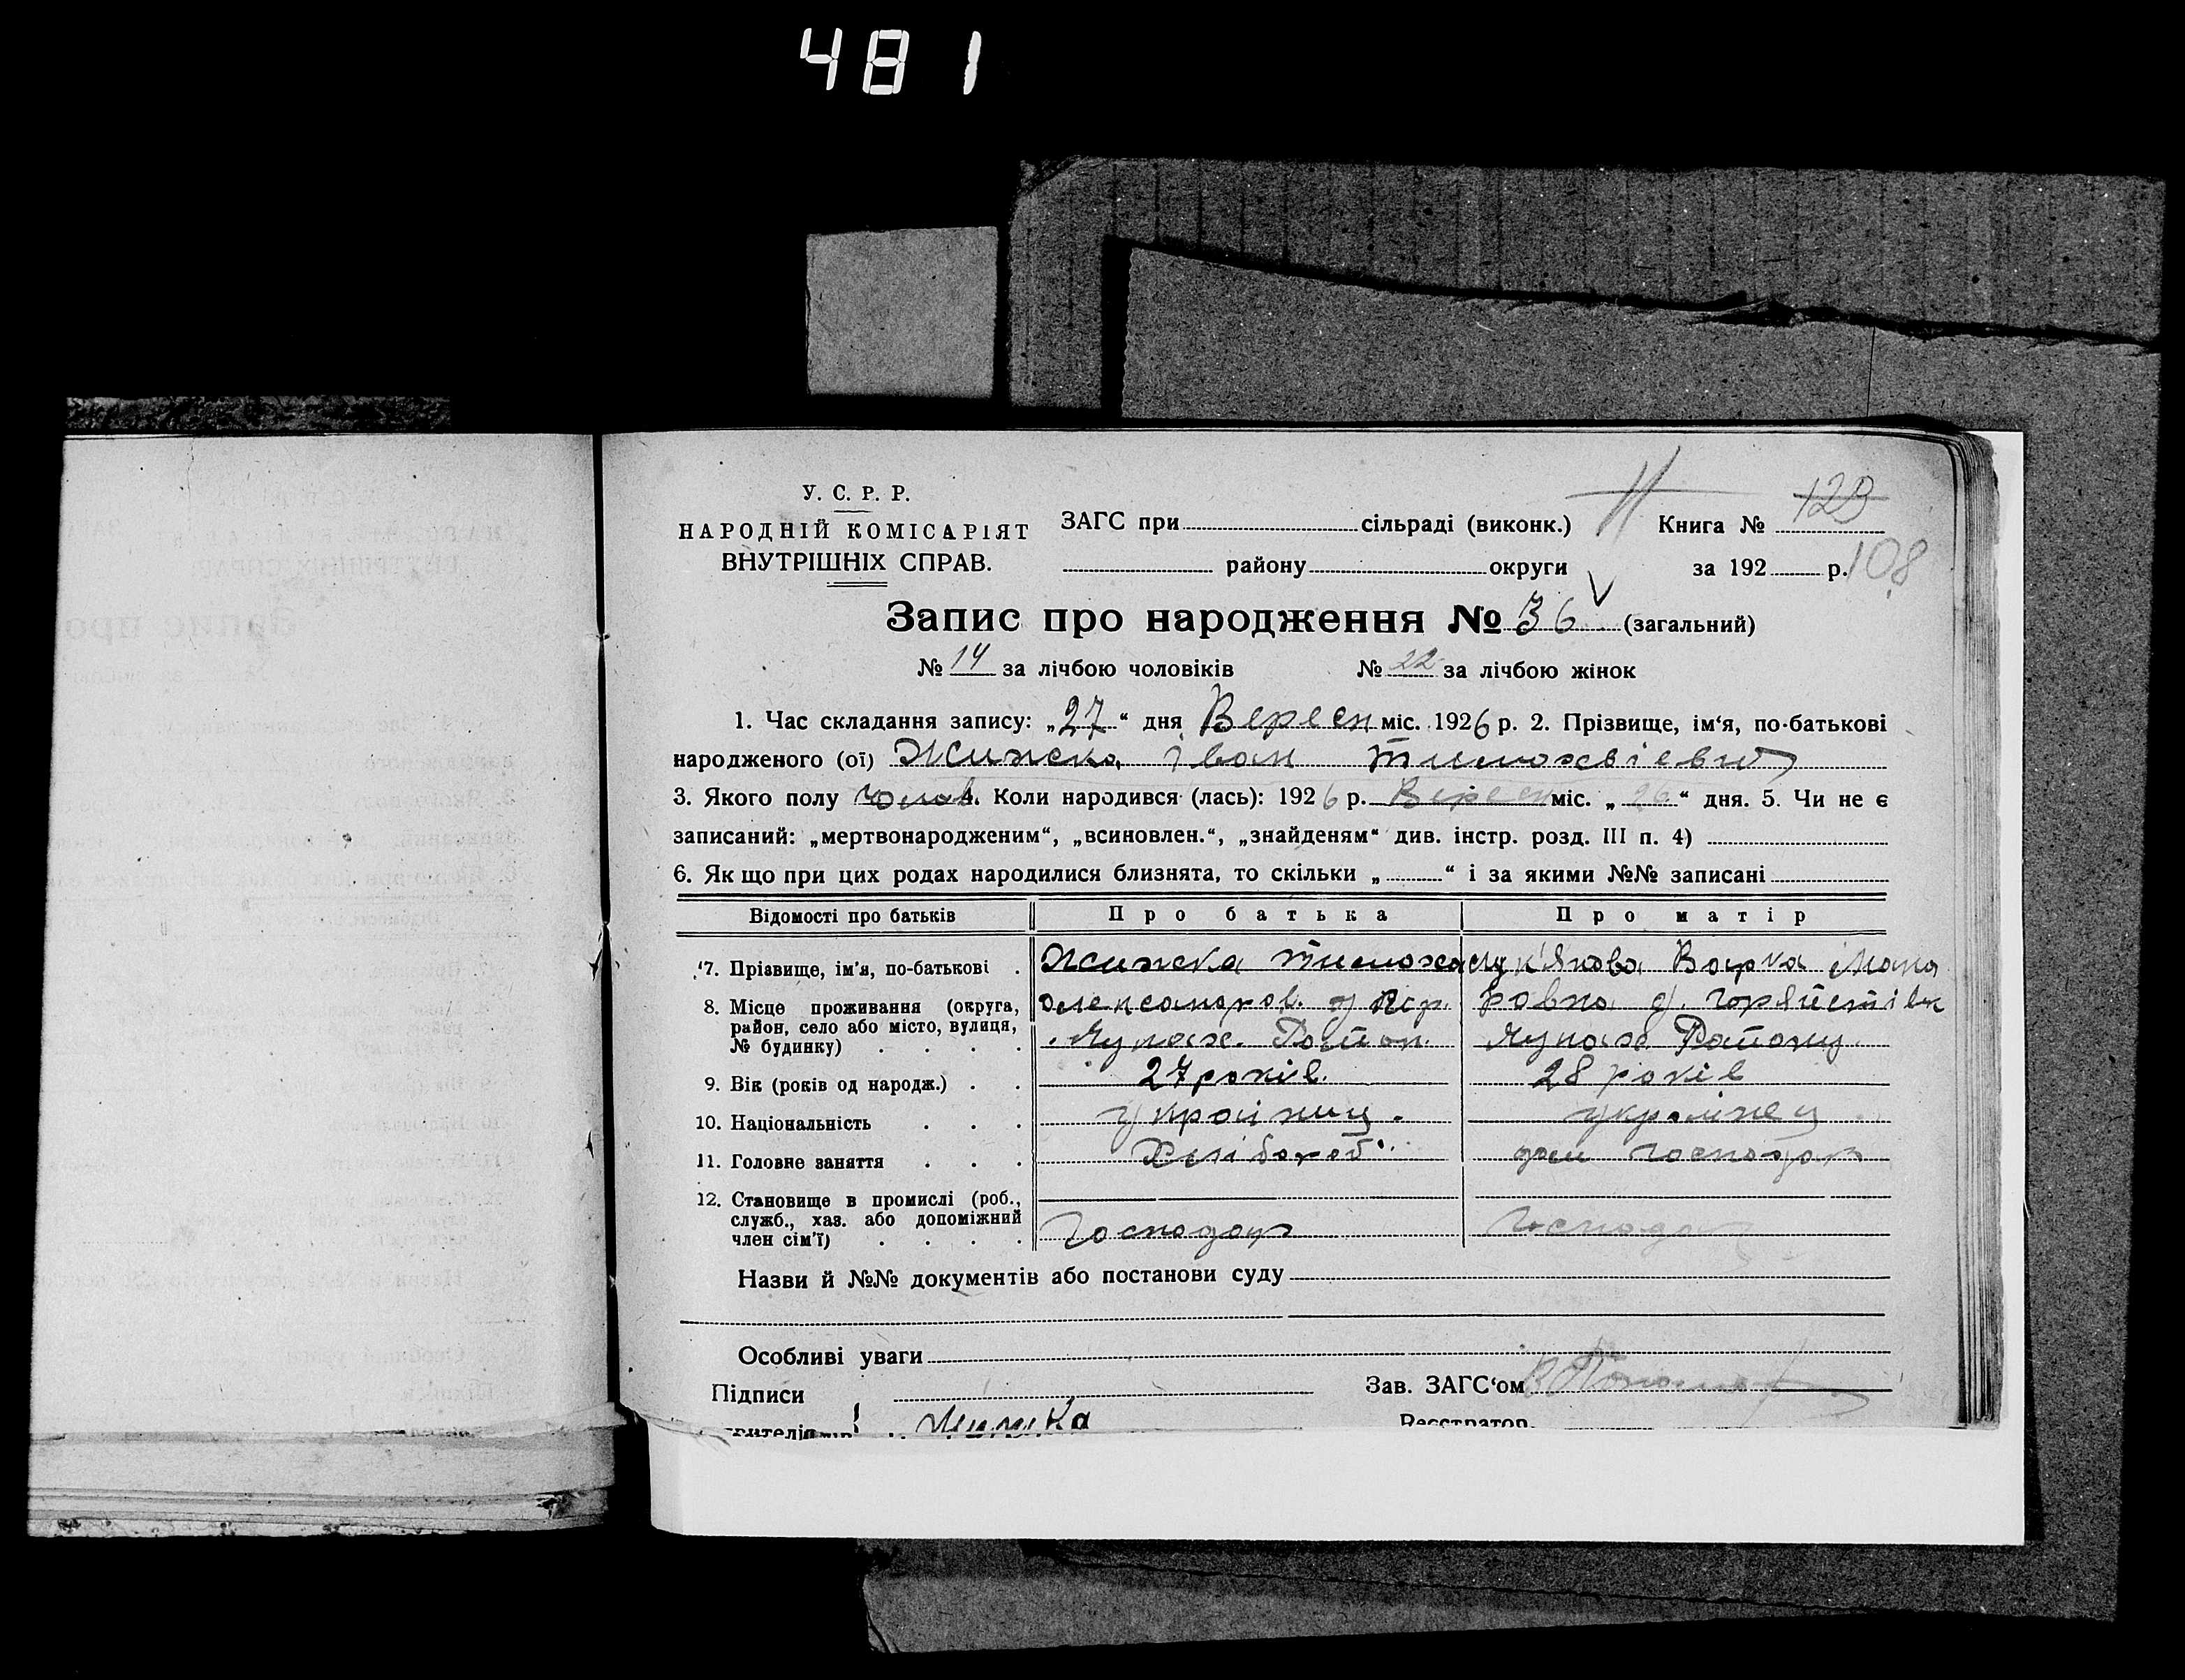 481
У. С. Р. Р.
НАРОДНІЙ КОМІСАРІЯТ
ВНУТРІШНІХ СПРАВ.
ЗАГС при сільраді (виконк.)
Книга № 123
району округи
за 192 р. 108
Запис про народження № 36 (загальний)
№ 14 за лічбою чоловіків № 22 за лічбою жінок
1. Час складання запису: „27“ дня Вересн міс. 1926 р. 2. Прізвище, ім‘я, по-батькові
народженого (ої) Жижка Іван Тимохвієвич
3. Якого полу Чолов. 4. Коли народився (лась): 1926 р. Вересн міс. „26“ дня. 5. Чи не є
записаний: „мертвонародженим“, „всиновлен.“, „знайденям“ див. інстр. розд. III п. 4)
6. Якщо при цих родах народилися близнята, то скільки „ “ і за якими №№ записані
Відомості про батьків Про батька Про матір
7. Прізвище, ім'я, по-батькові . Жижка Варка
8. Місце проживання (округа,
район, село або місто, вулиця,
№ будинку) . . . .
9. Вік (років од народж.) . . 27 років. 28 років
10. Національність . . . україниц. українец
11. Головне заняття . . . Хлібороб дом господар
12. Становище в промислі (роб.,
служб., хаз. або допоміжний
член сім'ї) . . . . Господар Господар
Назви й №№ документів або постанови суду
Особливі уваги
Підписи
Зав. ЗАГС‘ом
Жижка
Реєстратор.